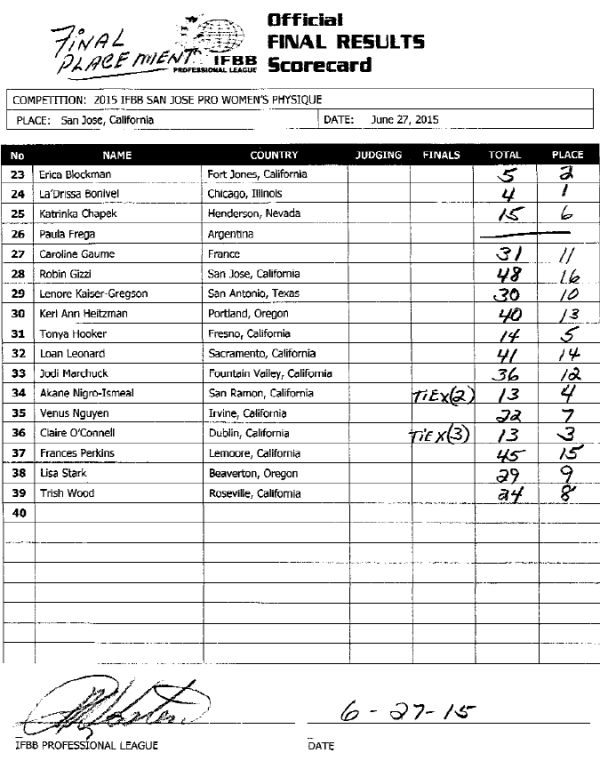 FINAL PLACEMENT
IFBB
PROFESSIONAL LEAGUE
Official
FINAL RESULTS
Scorecard
COMPETITION: 2015 IFBB SAN JOSE PRO WOMEN'S PHYSIQUE
PLACE: San Jose, California DATE: June 27, 2015
No NAME COUNTRY JUDGING FINALS TOTAL PLACE
23 Erica Blockman Fort Jones, California 5 2
24 La'Drissa Bonivel Chicago, Illinois 4 1
25 Katrinka Chapek Henderson, Nevada 15 6
26 Paula Frega Argentina
27 Caroline Gaume France 31 11
28 Robin Gizzi San Jose, California 48 16
29 Lenore Kaiser-Gregson San Antonio, Texas 30 10
30 Keri Ann Heitzman Portland, Oregon 40 13
31 Tonya Hooker Fresno, California 14 5
32 Loan Leonard Sacramento, California 41 14
33 Jodi Marchuck Fountain Valley, California 36 12
34 Akane Nigro-Ismeal San Ramon, California TiEx(2) 13 4
35 Venus Nguyen Irvine, California 22 7
36 Claire O'Connell Dublin, California TiEX(3) 13 3
37 Frances Perkins Lemoore, California 45 15
38 Lisa Stark Beaverton, Oregon 29 9
39 Trish Wood Roseville, California 24 8
40
6-27-15
IFBB PROFESSIONAL LEAGUE DATE